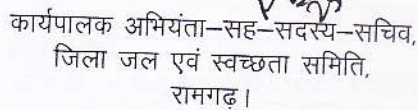 कार्यपालक अभियंता–सह–सदस्य–सचिव,
जिला जल एवं स्वच्छता समिति,
रामगढ़।